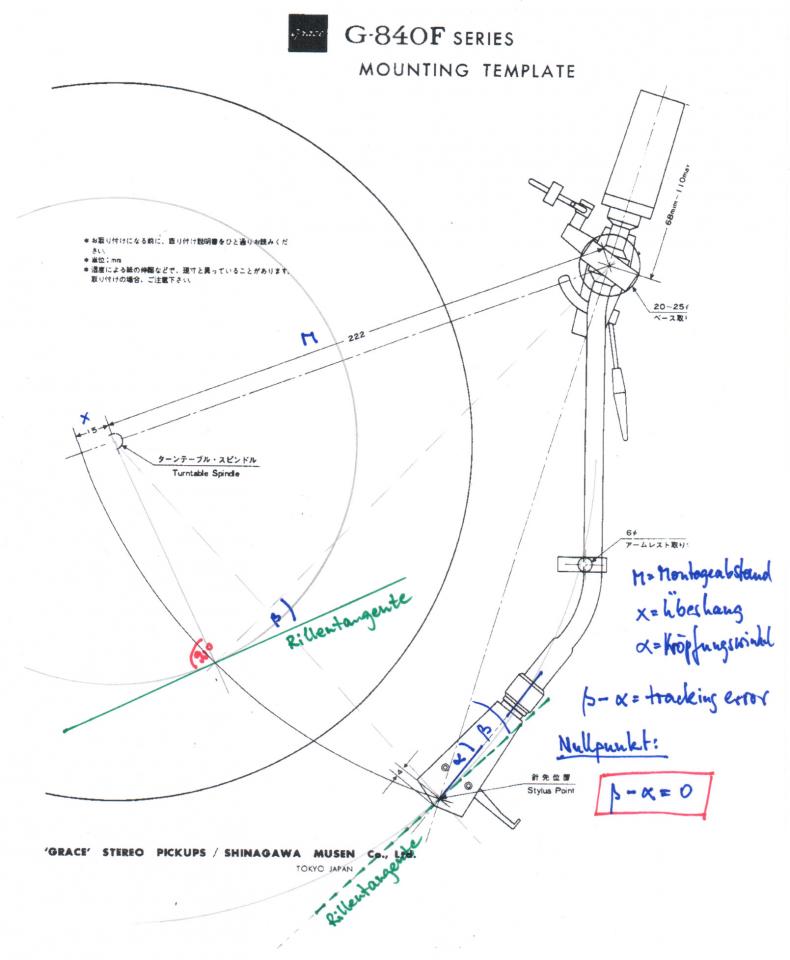 Grace
G-840F SERIES
MOUNTING TEMPLATE
68mm~110max
* お取り付けになる前に、取り付け説明書をひと通りお読みくだ
さい.
* 単位:mm
* 湿度による紙の伸縮などで、現寸と異っていることがあります.
取り付けの場合、ご注意下さい.
20~25φ
ベース取
M
222
X
15
ターンテーブル・スピンドル
Turntable Spindle
6φ
アームレスト取り
M = Montageabstand
x = Überhang
α = Kröpfungswinkel
β - α = tracking error
Nullpunkt:
β - α = 0
β
Rillentangente
90°
α
β
4
針先位置
Stylus Point
Rillentangente
'GRACE' STEREO PICKUPS / SHINAGAWA MUSEN Co., Ltd.
TOKYO JAPAN